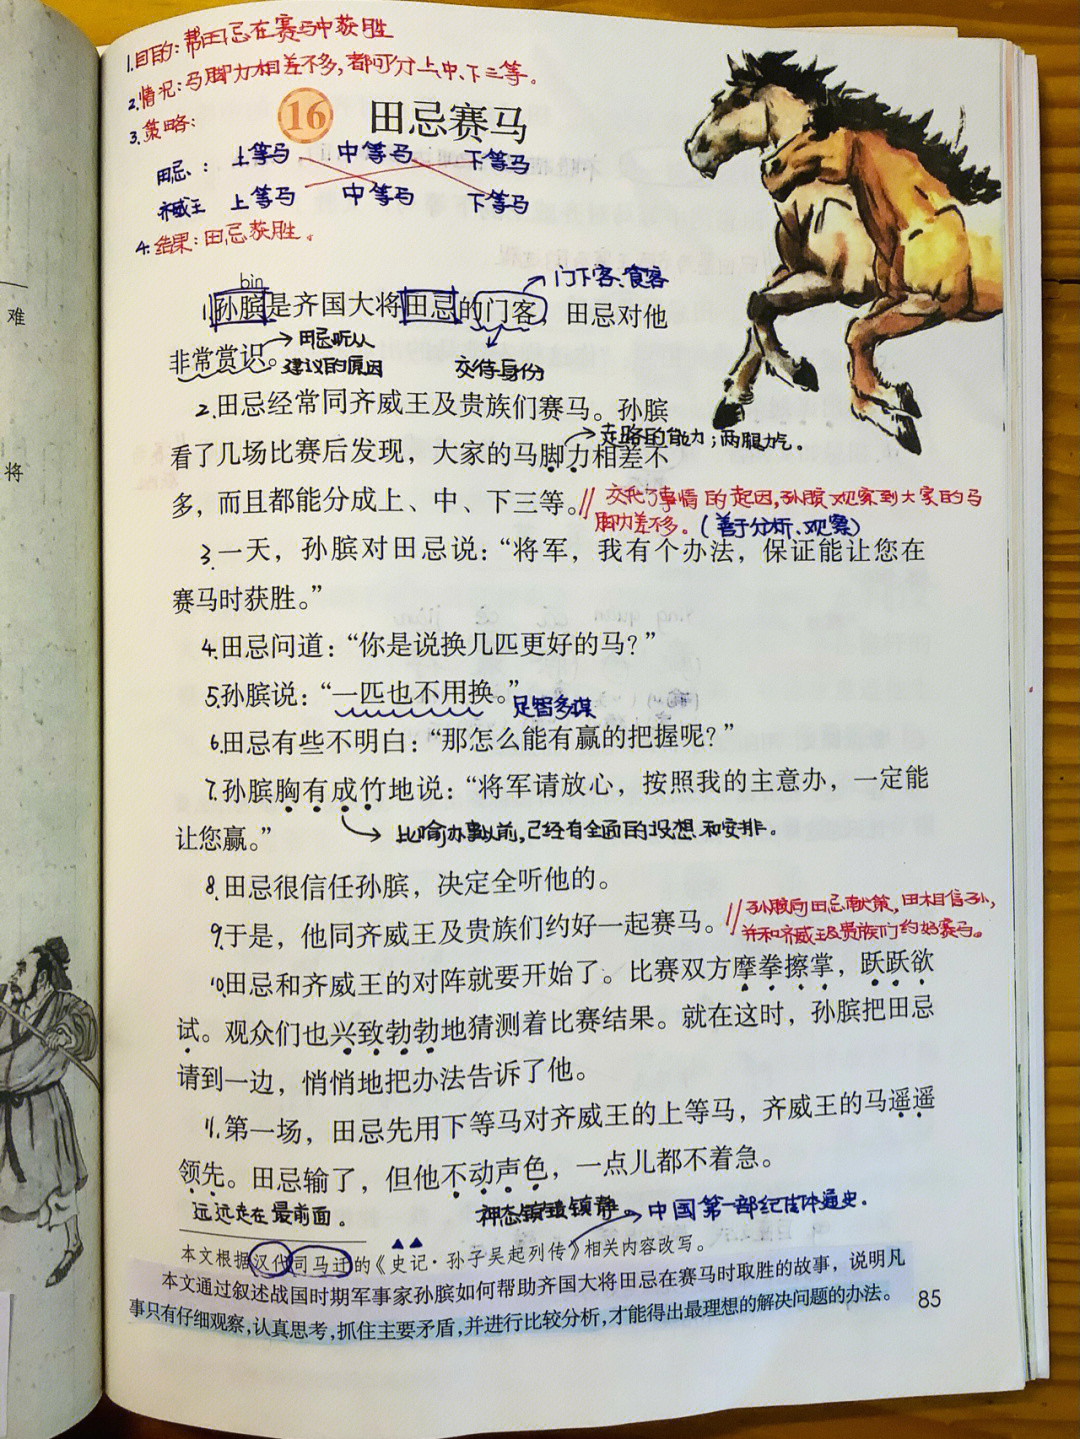 1.目的：帮田忌在赛马中获胜
2.情况：马脚力相差不多，都可分上、中、下三等。
16 田忌赛马
3.策略：
田忌：上等马 中等马 下等马
齐威王 上等马 中等马 下等马
4.结果：田忌获胜。
难
将
bìn
门下客、食客
1.孙膑是齐国大将田忌的门客，田忌对他
非常赏识。
田忌听从
建议的原因
交待身份
2.田忌经常同齐威王及贵族们赛马。孙膑
走路的能力；两腿力气。
看了几场比赛后发现，大家的马脚力相差不
多，而且都能分成上、中、下三等。
//交代了事情的起因，孙膑观察到大家的马
脚力差不多。（善于分析、观察）
3.一天，孙膑对田忌说：“将军，我有个办法，保证能让您在
赛马时获胜。”
4.田忌问道：“你是说换几匹更好的马？”
5.孙膑说：“一匹也不用换。”
足智多谋
6.田忌有些不明白：“那怎么能有赢的把握呢？”
7.孙膑胸有成竹地说：“将军请放心，按照我的主意办，一定能
让您赢。”
比喻办事以前，已经有全面的设想和安排。
8.田忌很信任孙膑，决定全听他的。
9.于是，他同齐威王及贵族们约好一起赛马。
//孙膑向田忌献策，田相信孙，
并和齐威王及贵族们约好赛马。
10.田忌和齐威王的对阵就要开始了。比赛双方摩拳擦掌，跃跃欲
试。观众们也兴致勃勃地猜测着比赛结果。就在这时，孙膑把田忌
请到一边，悄悄地把办法告诉了他。
11.第一场，田忌先用下等马对齐威王的上等马，齐威王的马遥遥
领先。田忌输了，但他不动声色，一点儿都不着急。
远远走在最前面。
神态
镇静。
中国第一部纪传体通史。
本文根据汉代司马迁的《史记·孙子吴起列传》相关内容改写。
本文通过叙述战国时期军事家孙膑如何帮助齐国大将田忌在赛马时取胜的故事，说明凡
事只有仔细观察，认真思考，抓住主要矛盾，并进行比较分析，才能得出最理想的解决问题的办法。
85